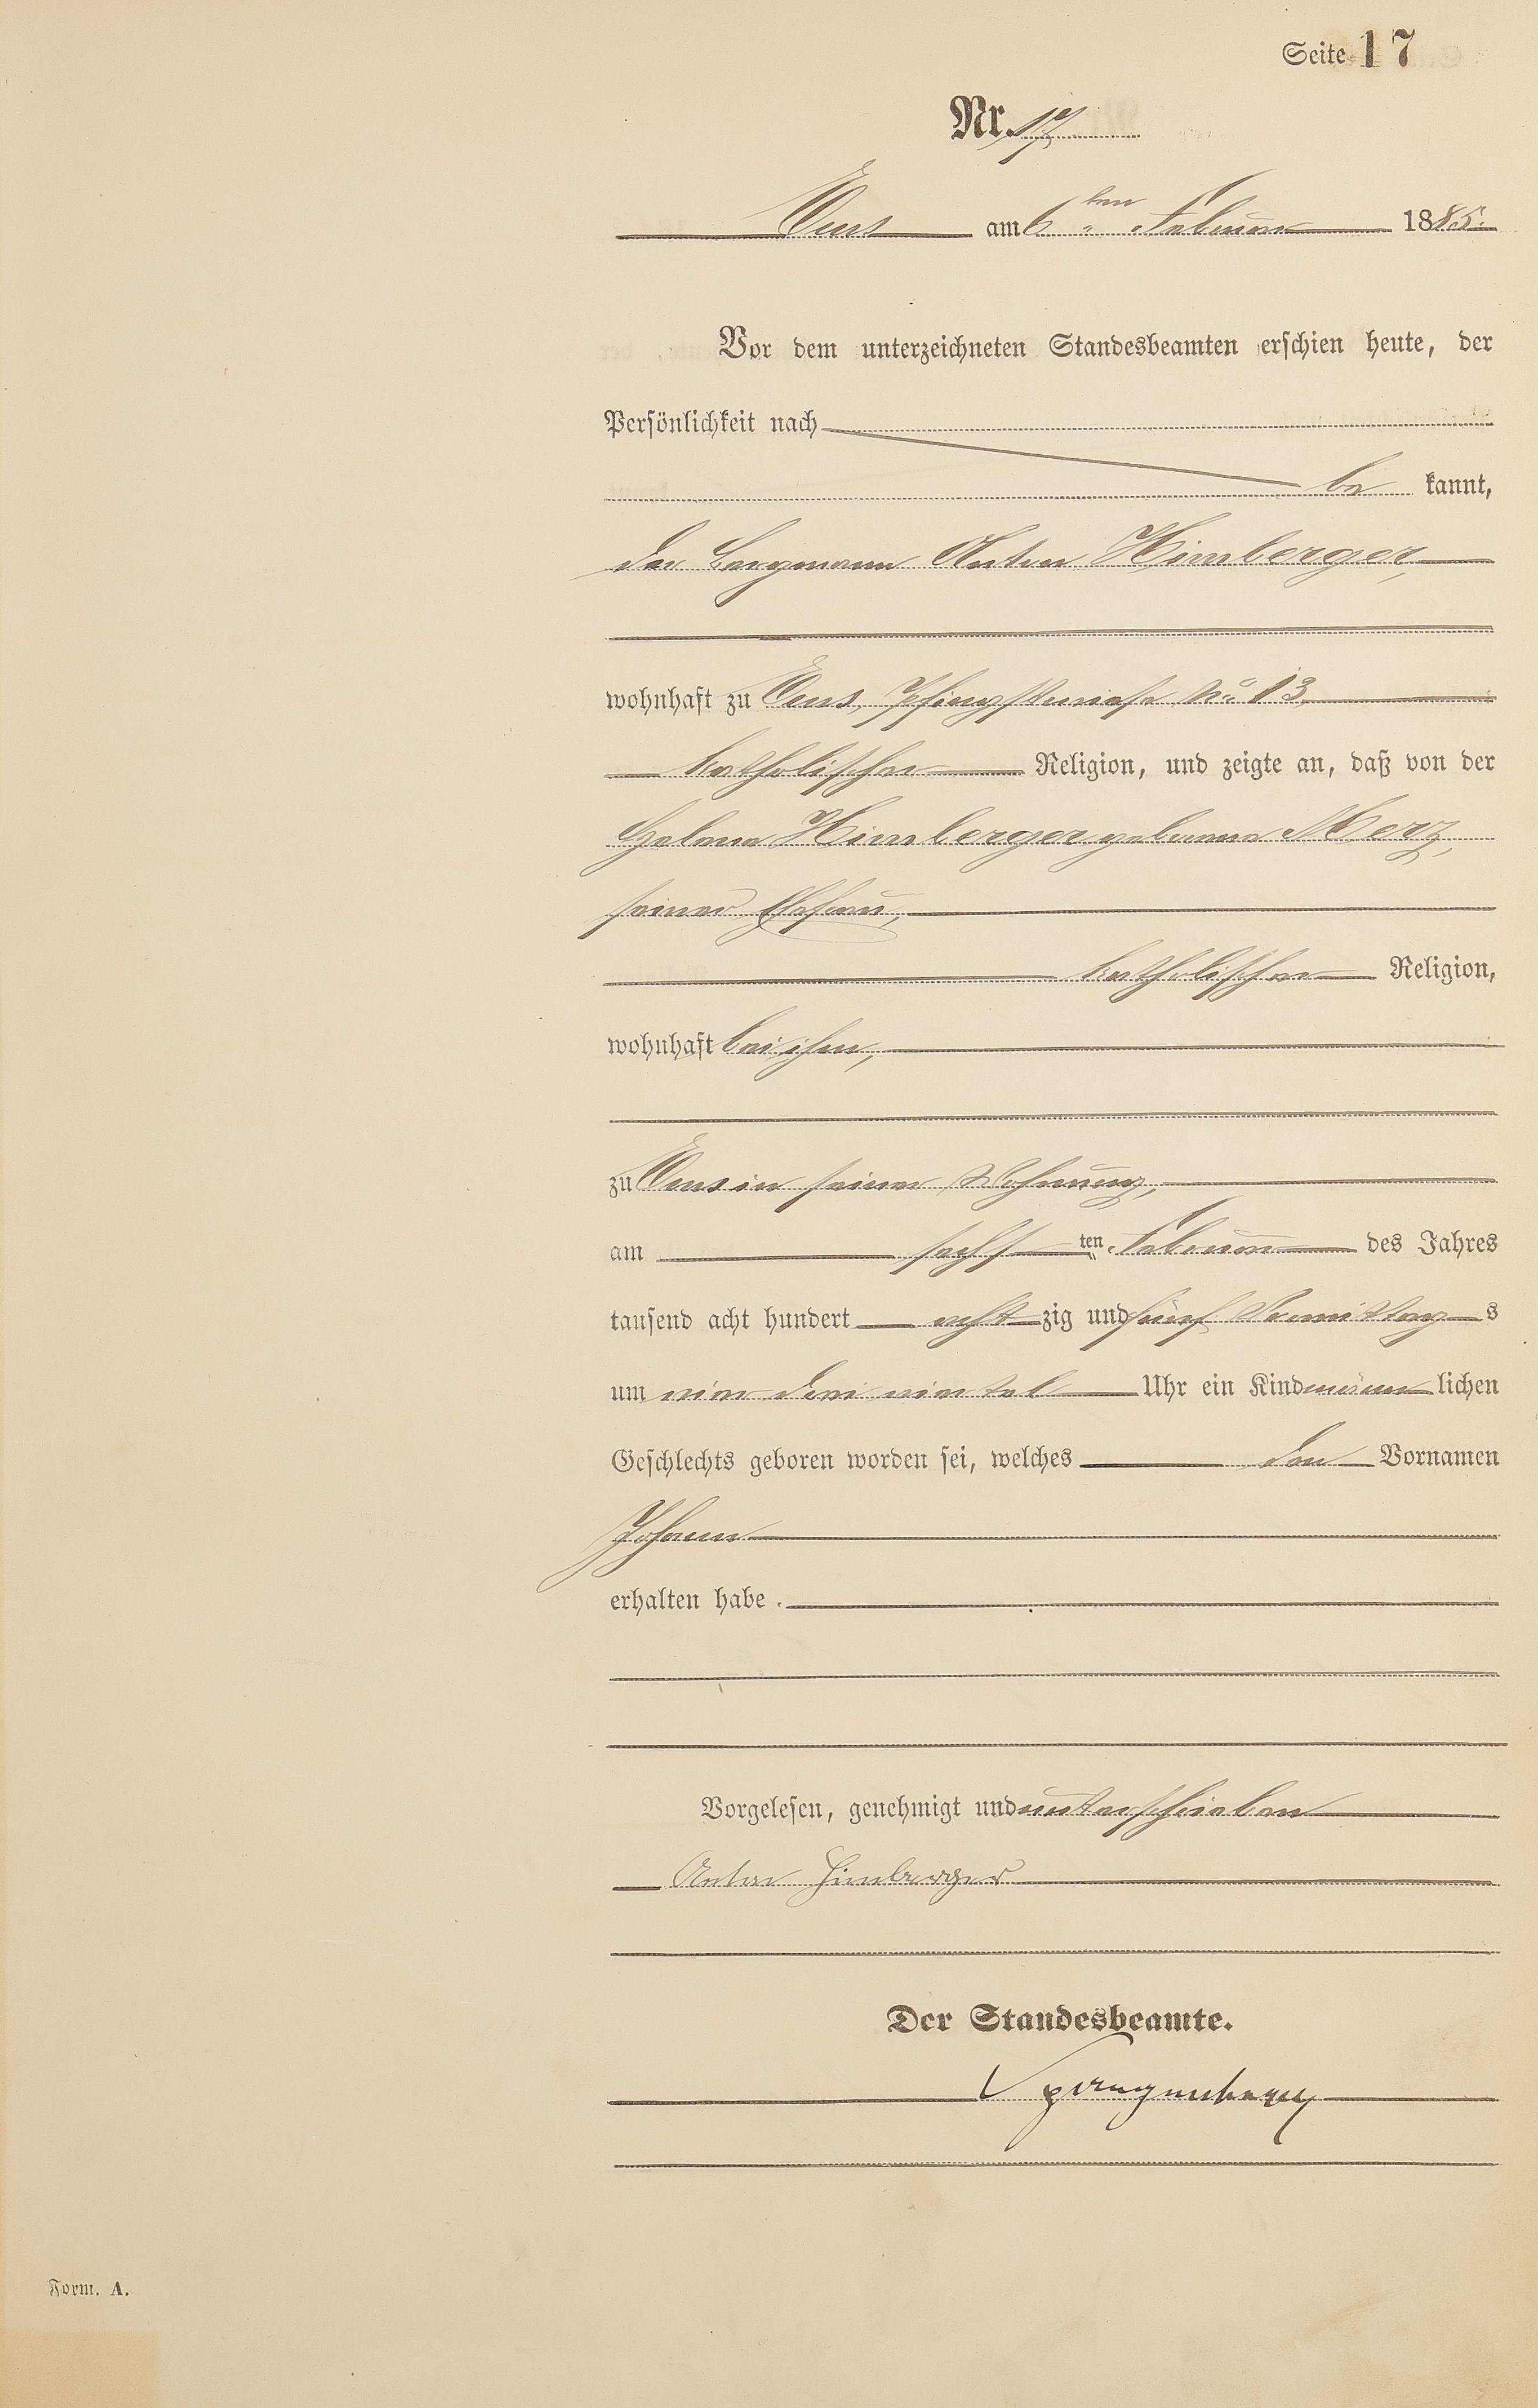 Seite 17
Nr. 17
Ems am 6ten Februar 1885.
Vor dem unterzeichneten Standesbeamten erschien heute, der
Persönlichkeit nach
be kannt,
der Bergmann Anton Himberger,
wohnhaft zu Ems, Pfingstwiese No 13,
katholischer Religion, und zeigte an, daß von der
Helena Himberger geborene Merz,
seiner Ehefrau,
katholischer Religion,
wohnhaft bei ihm,
zu Ems in seiner Wohnung,
am sechs ten Februar des Jahres
tausend acht hundert acht zig und fünf Vormittag s
um vier drei viertel Uhr ein Kind männ lichen
Geschlechts geboren worden sei, welches den Vornamen
Johann
erhalten habe.
Vorgelesen, genehmigt und unterschrieben
Anton Himberger
Der Standesbeamte.
Form. A.